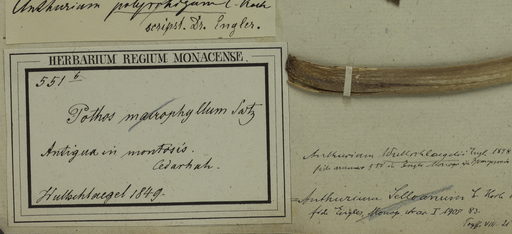 Anthurium polyrrhizum C. Koch
scripst. Dr. Engler.
HERBARIUM REGIUM MONACENSE.
551 b
Pothos macrophyllum Swtz
Antigua in montosis.
Cedarhall.
Wullschlaegel 1849.
Anthurium Wullschlaegelii Engl. 1898
fide
Anthurium Selloanum C. Koch
fide Engler, Monogr. Arac. I 1905 83.